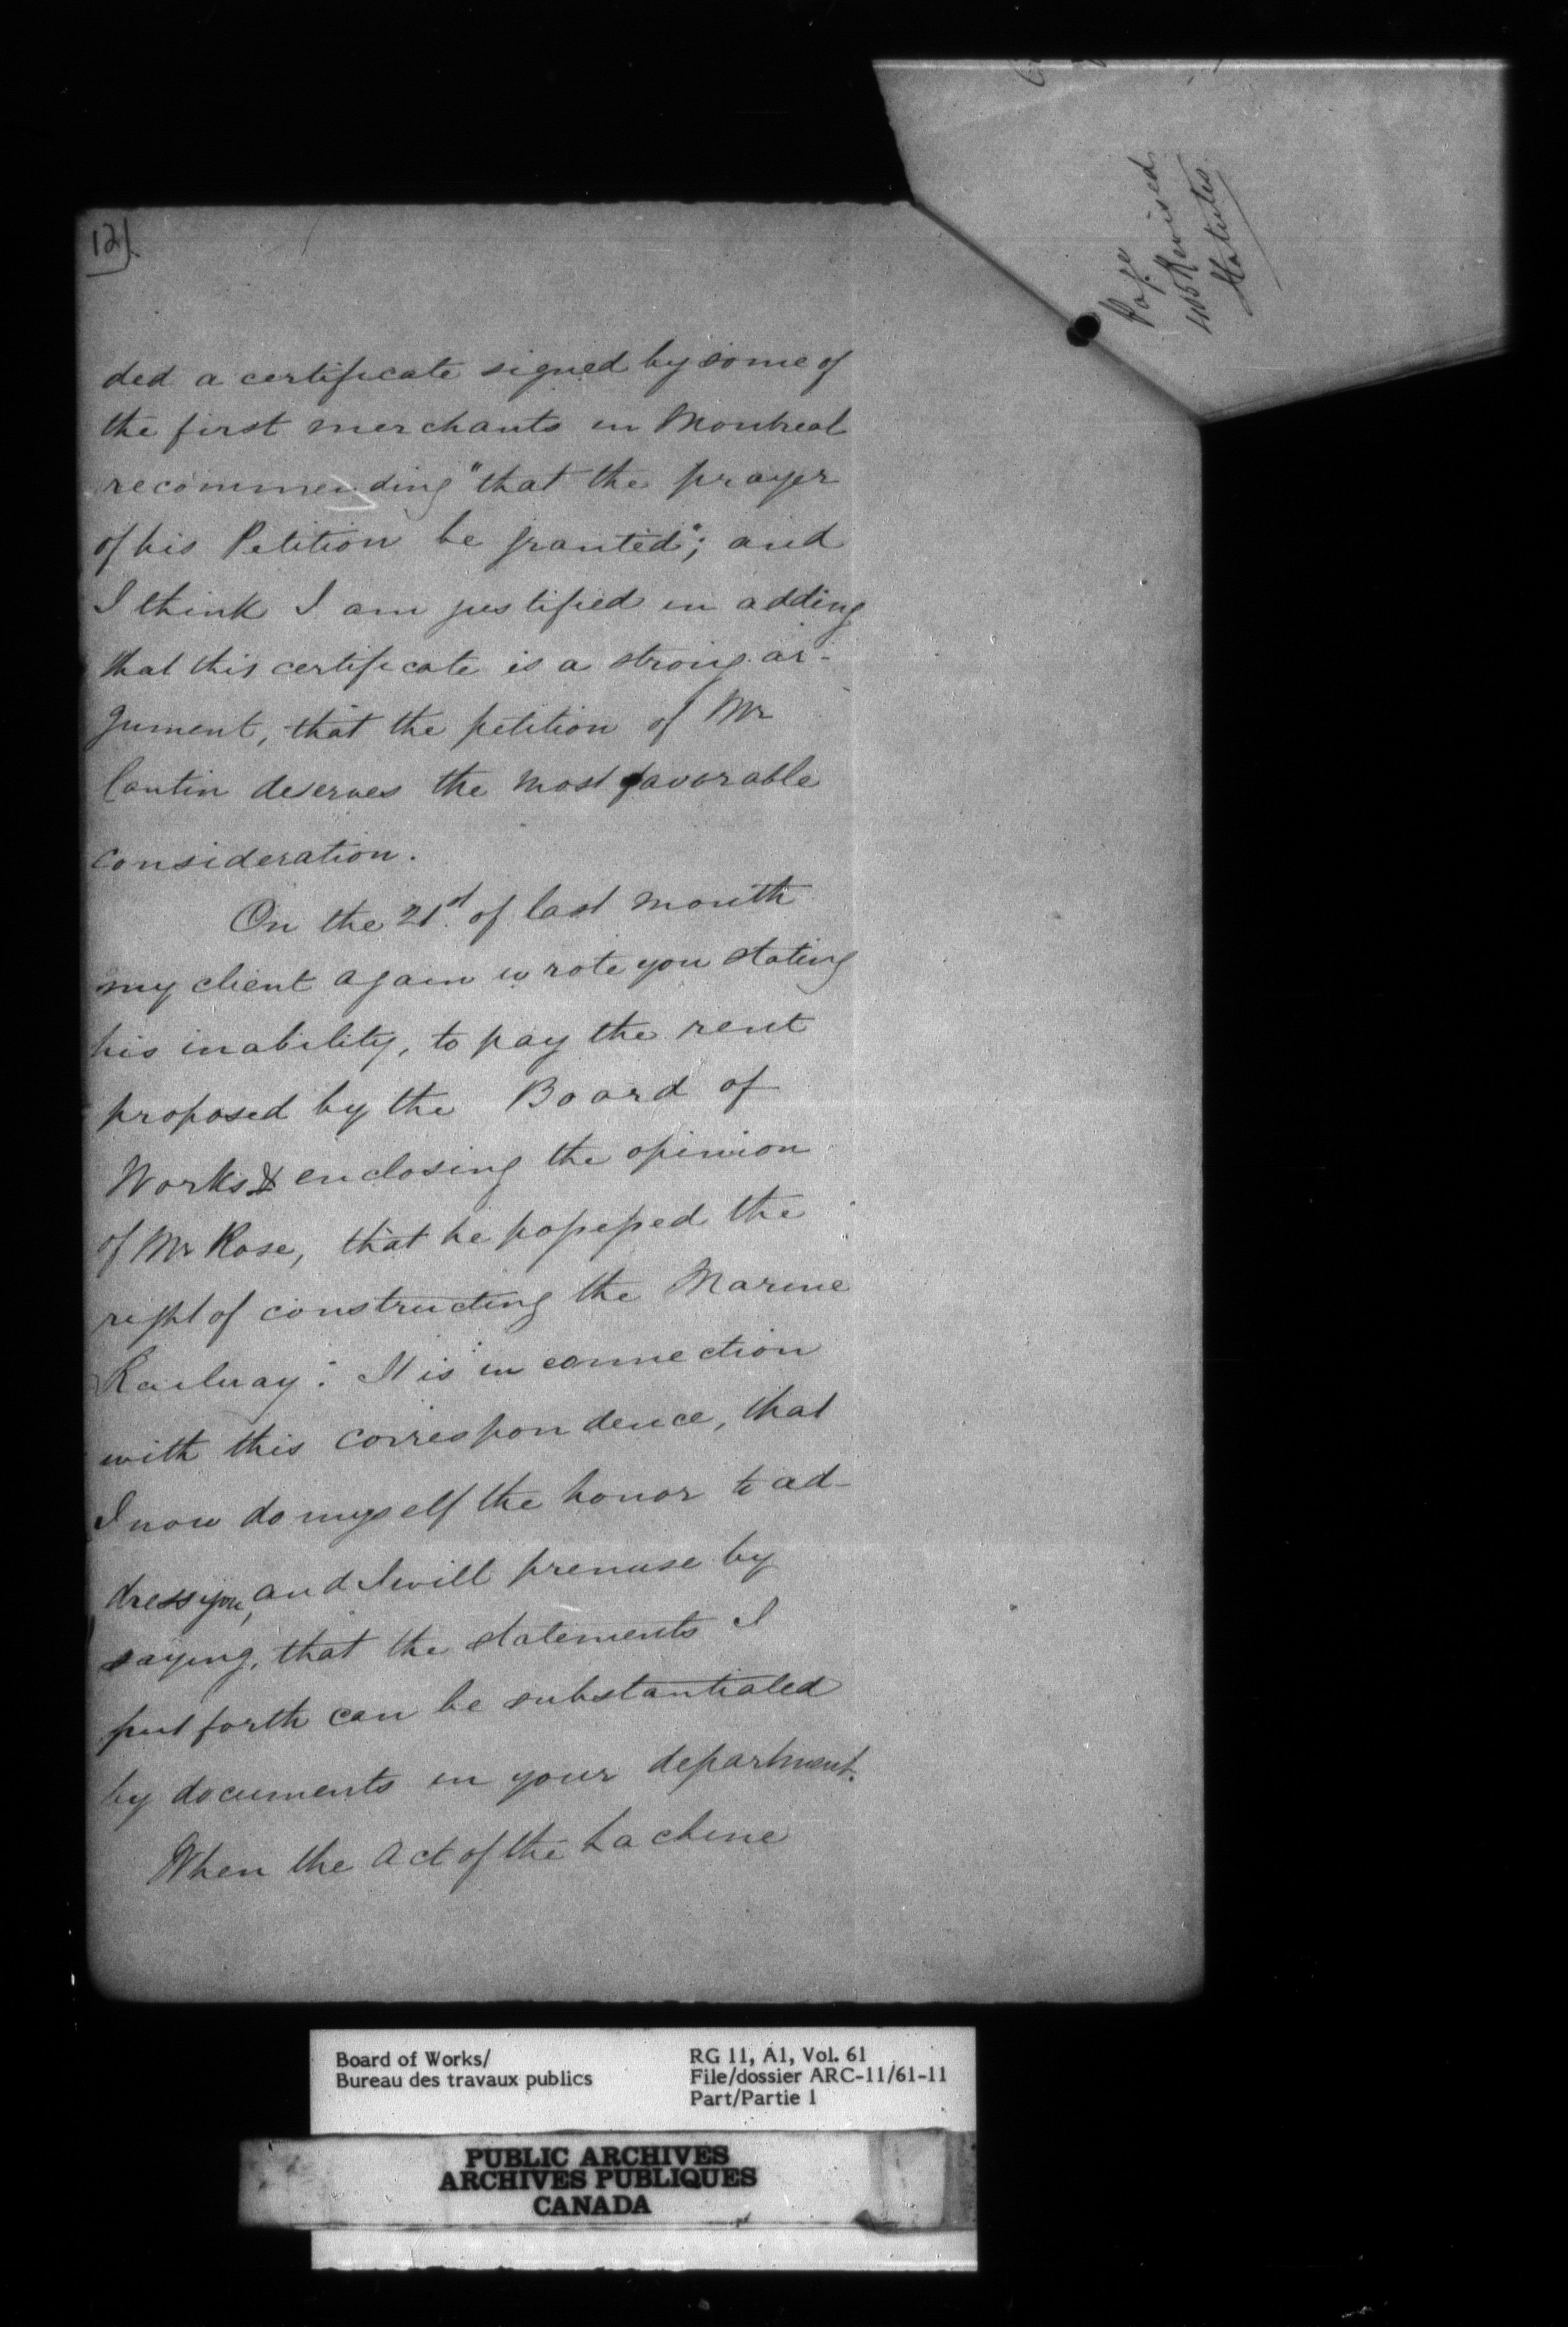 12).
Page
405 Revised
Statutes
ded a certificate signed by some of
the first merchants in Montreal
recommending "that the prayer
of his Petition be granted"; and
I think I am justified in adding
that this certificate is a strong ar-
gument, that the petition of Mr
Cantin deserves the most favorable
consideration.
On the 21st of last month
my client again wrote you stating
his inability, to pay the rent
proposed by the Board of
Works & enclosing the opinion
of Mr Rose, that he possessed the
right of constructing the Marine
Railway: It is in connection
with this correspondence, that
I now do myself the honor to ad-
dress you, and I will premise by
saying, that the statements I
put forth can be substantiated
by documents in your department.
When the Act of the Lachine
Board of Works/
Bureau des travaux publics
RG 11, A1, Vol. 61
File/dossier ARC-11/61-11
Part/Partie 1
PUBLIC ARCHIVES
ARCHIVES PUBLIQUES
CANADA